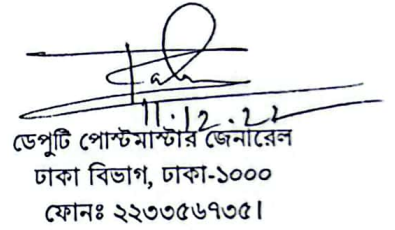 11.12.22
ডেপুটি পোস্টমাস্টার জেনারেল
ঢাকা বিভাগ, ঢাকা-১০০০
ফোনঃ ২২৩৩৫৬৭৩৫।